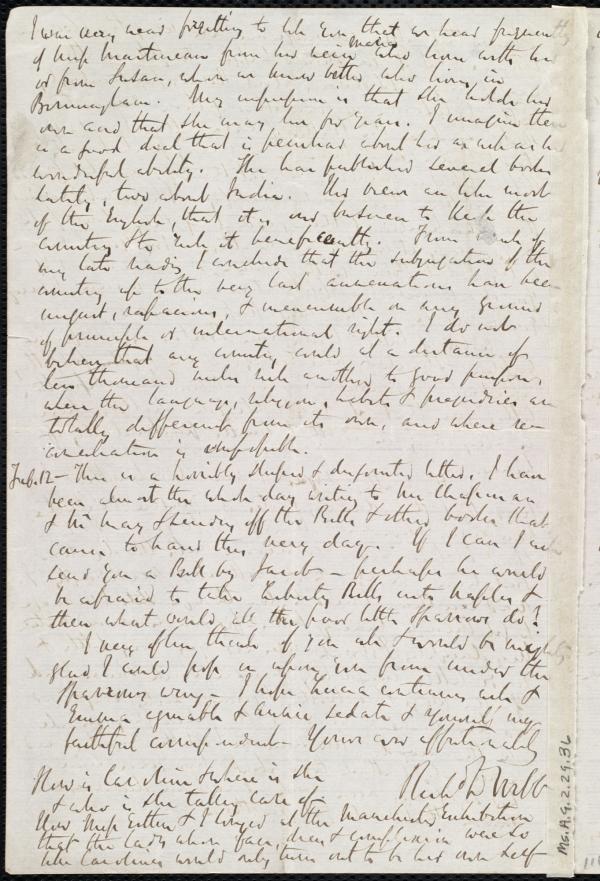 I was very near forgetting to tell you that we hear frequently
of Miss Martineau from her niece Maria who lives with her
or from Susan, whom we know better who lives in
Birmingham. My impression is that she holds her
own and that she may live for years. I imagine there
is a good deal that is peculiar about her as well as her
wonderful ability. She has published several books
lately, two about India. Her views are like most
of the English, that it is our business to keep the
country & to rule it beneficently. From
my late reading I conclude that the subjugation of the
country up to the very last annexations has been
unjust, rapacious, & inexcusable on any ground
of principle or international right. I do not
believe that any country could at a distance of
ten thousand miles rule another to good purpose,
when the language, religion, habits & prejudices are
totally different from its own, and where re-
conciliation is impossible.
Feb. 12 – This is a horribly stupid & disjointed letter. I have
been almost the whole day writing to Mrs Chapman
& to May & sending off the Bells & other books that
came to hand this very day. If I can I will
send you a Bell by Jacob – perhaps he would
be afraid to take Liberty Bells into Naples &
then what would all the poor little Sparrows do?
I very often think of you all & would be mighty
glad I could pop in upon you from under the
Sparrows wing – I hope continues well &
Emma agreeable & Annie sedate & yourself my
faithful correspondent – Yours ever affectionately
Richd D Webb
How is Caroline & where is she
& who is she taking care of –
How Miss Estlin & I longed at the Manchester Exhibition
that the lady whose face, dress & complexion were so
like Carolines would only turn out to be her own self
Ms. A. 9. 2. 29. 36